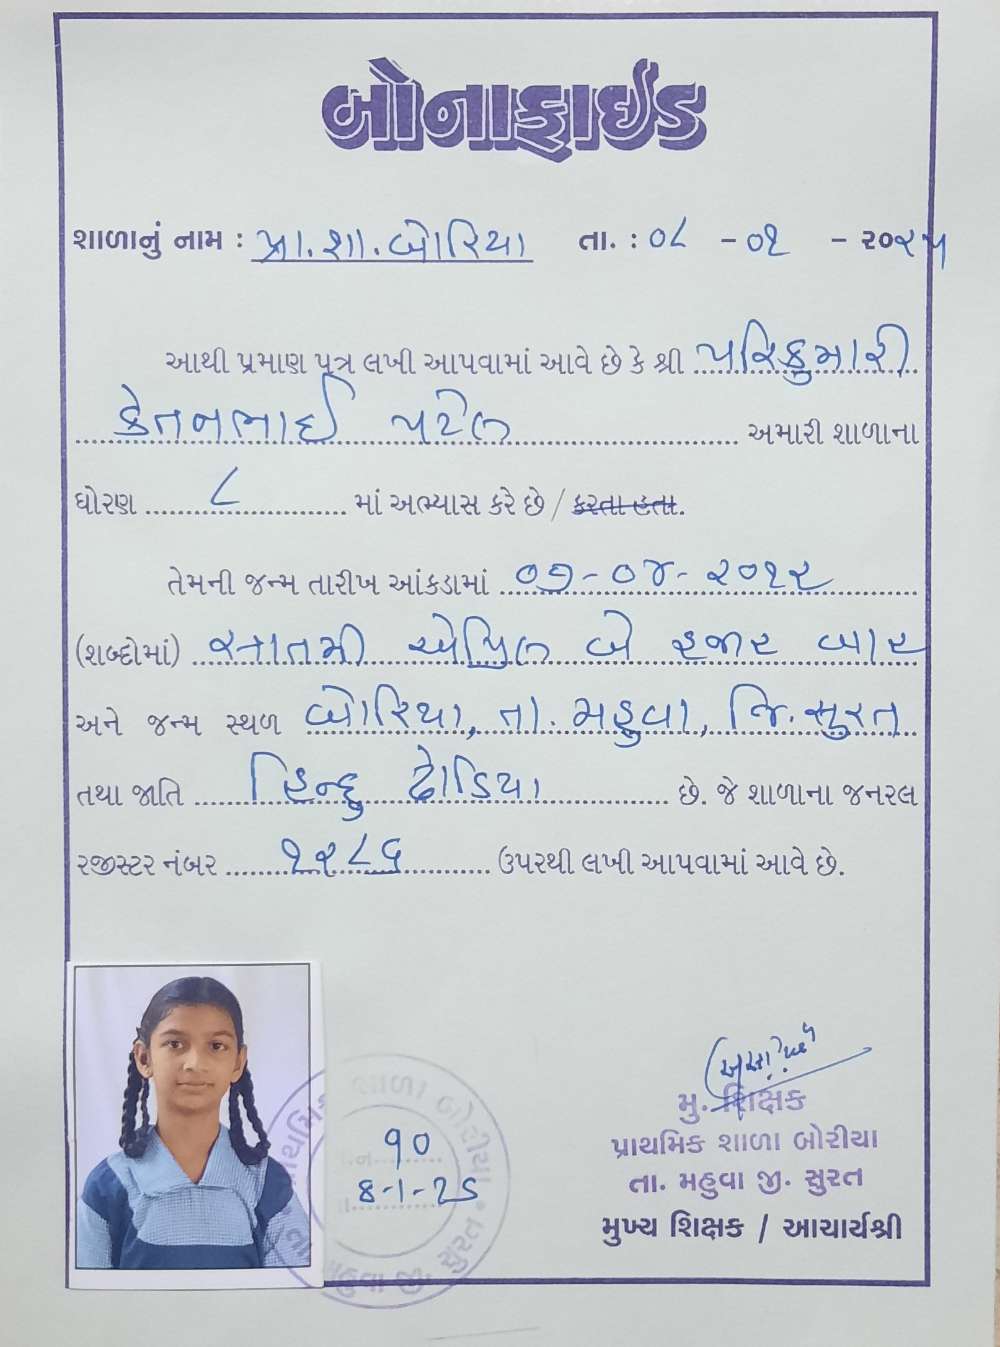 બોનાફાઈડ
શાળાનું નામ : પ્રા.શા.બોરિયા તા. : ૦૮ - ૦૧ - ૨૦૨૫
આથી પ્રમાણ પત્ર લખી આપવામાં આવે છે કે શ્રી પરિકુમારી
કેતનભાઈ પટેલ અમારી શાળાના
ધોરણ ૮ માં અભ્યાસ કરે છે / કરતા હતા.
તેમની જન્મ તારીખ આંકડામાં ૦૭-૦૪-૨૦૧૨
(શબ્દોમાં) સાતમી એપ્રિલ બે હજાર બાર
અને જન્મ સ્થળ બોરિયા, તા. મહુવા, જિ. સુરત
તથા જાતિ હિન્દુ ઢોડિયા છે. જે શાળાના જનરલ
રજીસ્ટર નંબર ૧૨૮૬ ઉપરથી લખી આપવામાં આવે છે.
૧૦
8-1-25
મુ. શિક્ષક
પ્રાથમિક શાળા બોરીયા
તા. મહુવા જી. સુરત
મુખ્ય શિક્ષક / આચાર્યશ્રી
શાળા બોરીયા * તા. મહુવા જી. સુરત *